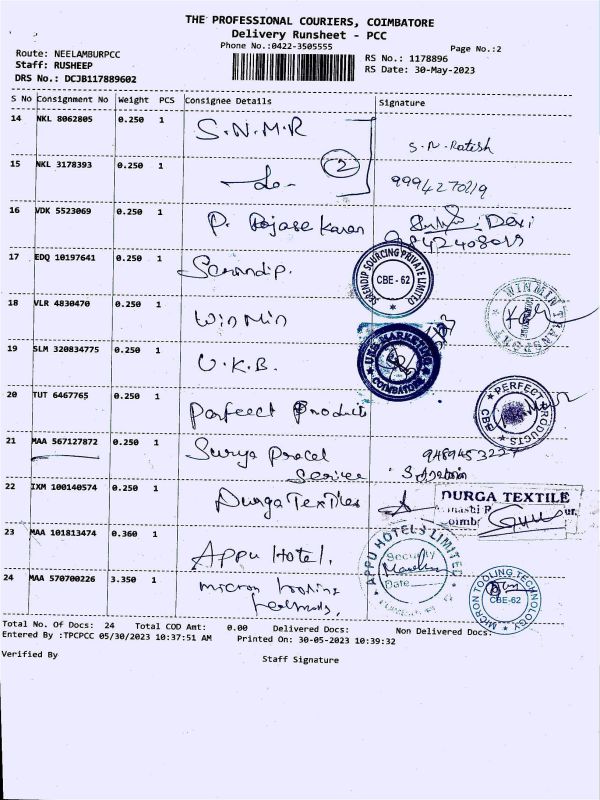 THE PROFESSIONAL COURIERS, COIMBATORE
Delivery Runsheet - PCC
Phone No.:0422-3505555
Page No.:2
Route: NEELAMBURPCC
RS No.: 1178896
Staff: RUSHEEP
RS Date: 30-May-2023
DRS No.: DCJB117889602
S No Consignment No Weight PCS Consignee Details Signature
14 NKL 8062805 0.250 1 S.N.M.R
S.N.Ratish
15 NKL 3178393 0.250 1 -do- 2
9994270219
16 VDK 5523069 0.250 1 P. Rajasekaran Devi
17 EDQ 10197641 0.250 1 Serendip. SERENDIP SOURCING PRIVATE LIMITED CBE - 62
18 VLR 4830470 0.250 1 WinMin WINMIN TRANSPORT
19 SLM 320834775 0.250 1 U.K.B. MARKETING COIMBATORE
20 TUT 6467765 0.250 1 Perfeect Products PERFECT PRODUCTS CBE
21 MAA 567127872 0.250 1 Surya Pracel
Serivce
22 IXM 100140574 0.250 1 Durga Textiles DURGA TEXTILE
23 MAA 101813474 0.360 1 Appu Hotel. APPU HOTELS LIMITED
Security
Date
24 MAA 570700226 3.350 1 micron tooling MICRON TOOLING TECHNOLOGY CBE-62
Total No. Of Docs: 24 Total COD Amt: 0.00 Delivered Docs: Non Delivered Docs:
Entered By :TPCPCC 05/30/2023 10:37:51 AM Printed On: 30-05-2023 10:39:32
Verified By
Staff Signature